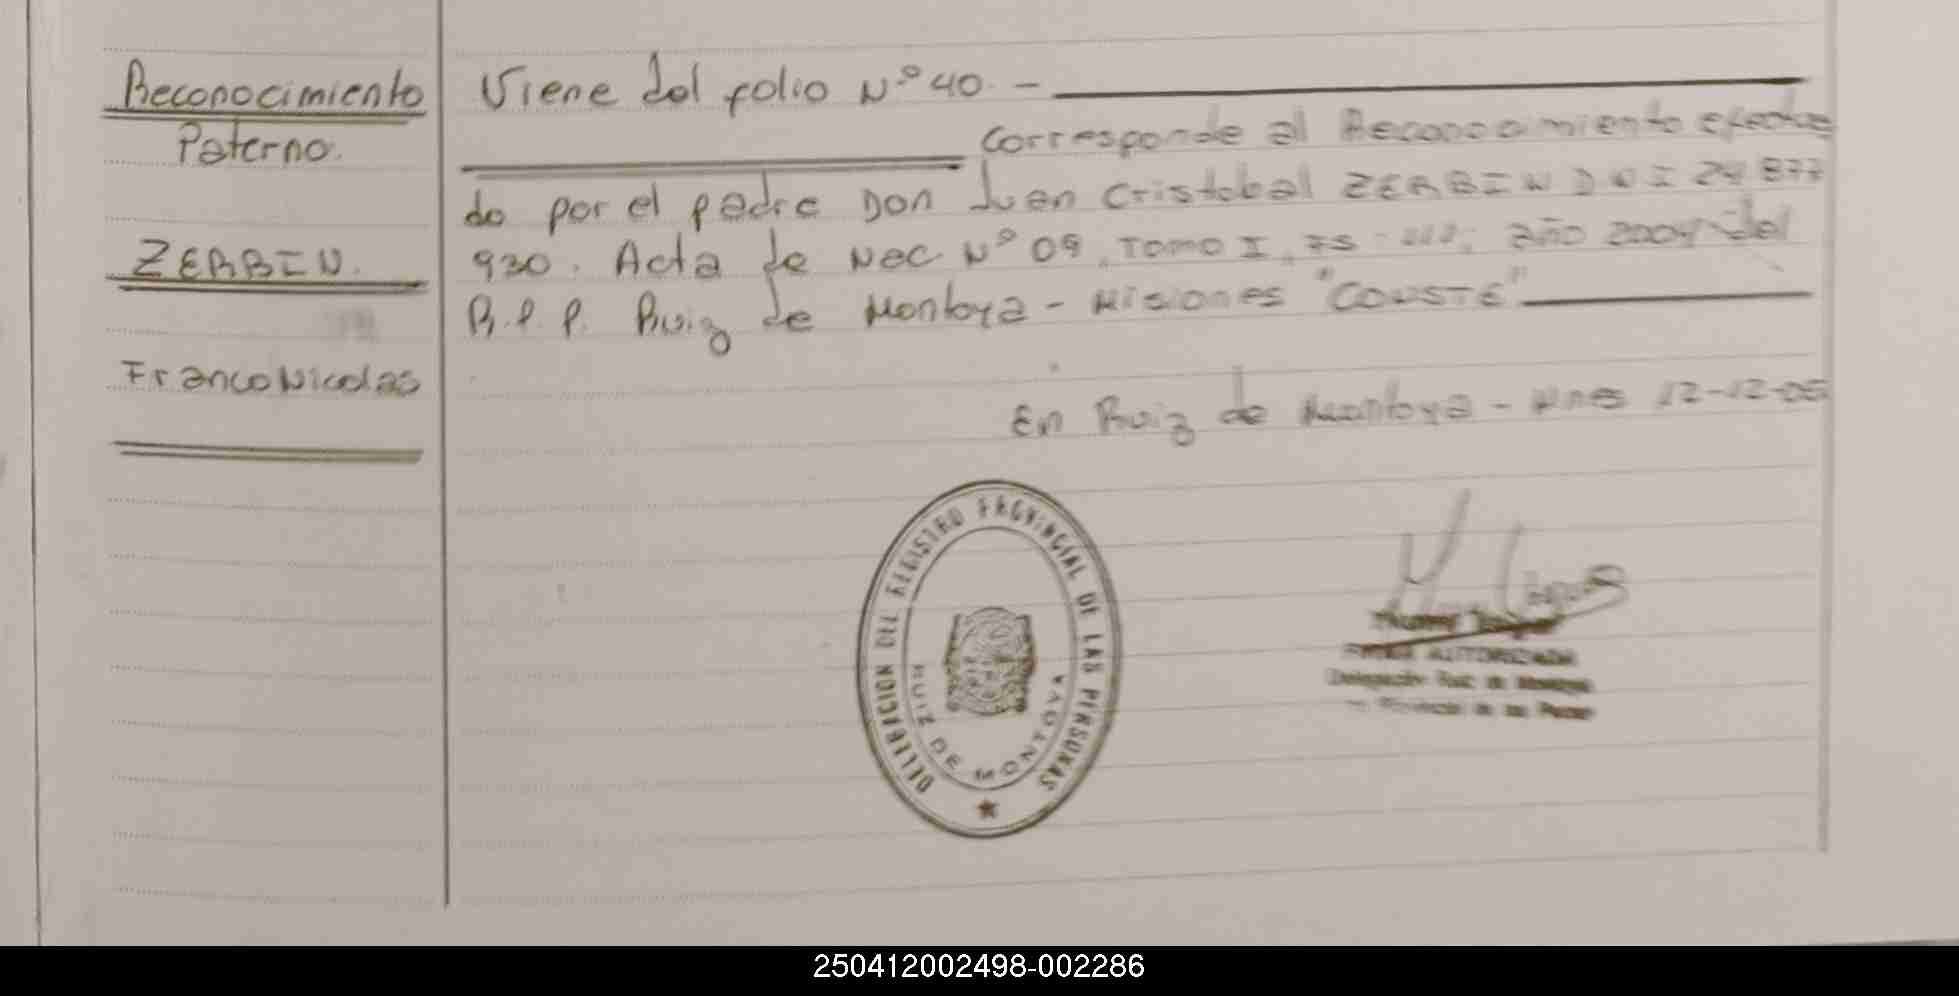 Reconocimiento
Paterno.
ZERBIN.
Franco Nicolas
Viene del folio Nº 40. -
Corresponde al Reconocimiento efectua
do por el padre Don Juan Cristobal ZERBIN DNI 24 877
930. Acta de Nac. Nº 09, Tomo I, Fs. año 2004 del
R.P.P. Ruiz de Montoya - Misiones "CONSTE"
En Ruiz de Montoya - Mnes 12-12-05
DELEGACION DEL REGISTRO PROVINCIAL DE LAS PERSONAS
RUIZ DE MONTOYA
FIRMA AUTORIZADA
Delegación Ruiz de Montoya
250412002498-002286